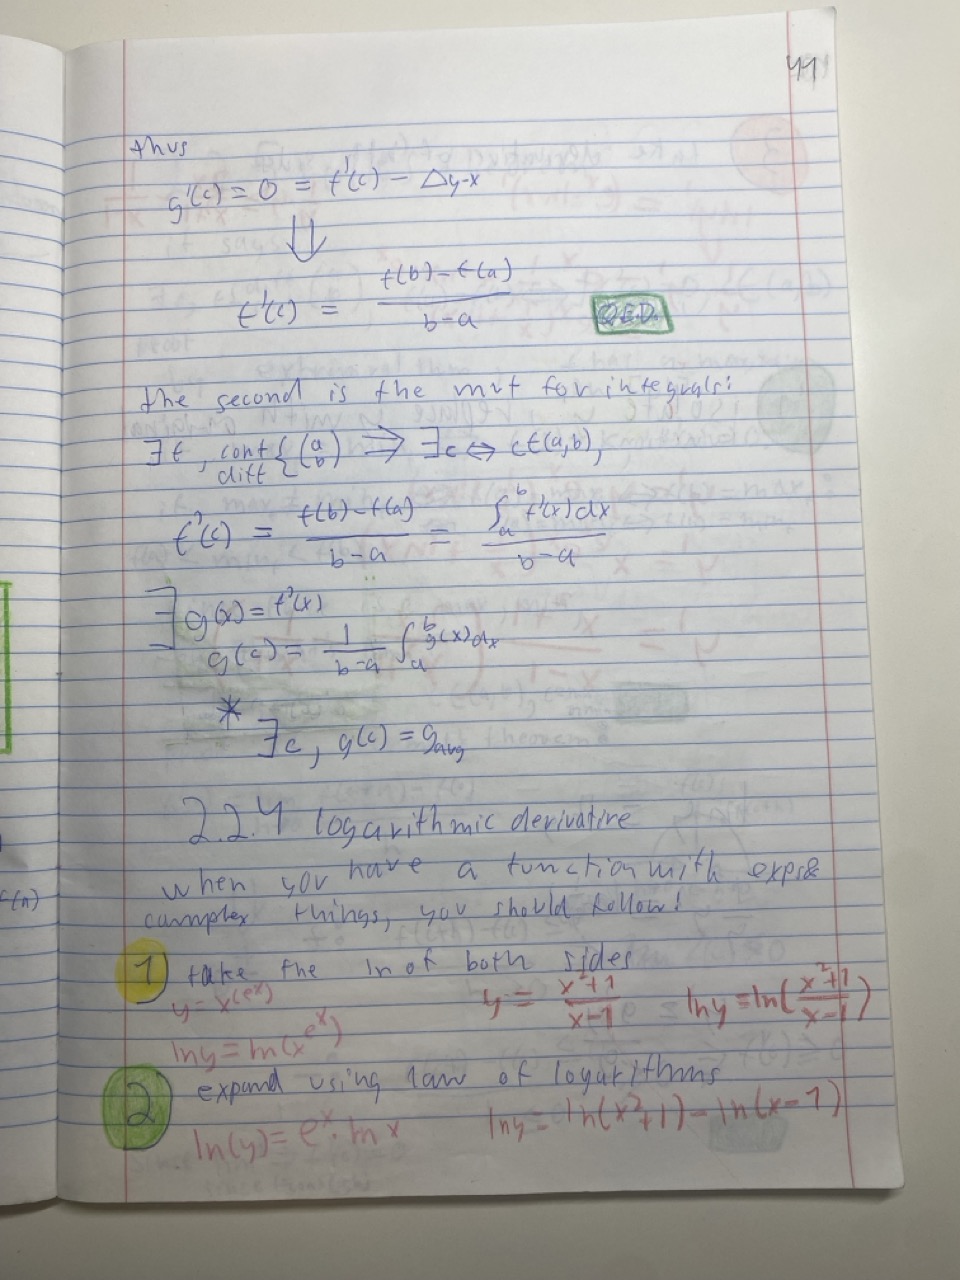 41
thus
g'(c) = 0 = f'(c) - Δy-x
⇓
f'(c) = f(b)-f(a) / b-a
Q.E.D.
the second is the mvt for integrals:
∃f, cont diff { (a b) ⟹ ∃c ⇔ c∈(a,b),
f'(c) = f(b)-f(a) / b-a = ∫_a^b f'(x)dx / b-a
∃ g(x) = f'(x)
g(c) = 1/b-a ∫_a^b g(x)dx
* ∃c, g(c) = g_avg
2.2.4 logarithmic derivative
when you have a function with exps&
complex things, you should follow!
1 take the ln of both sides
y = x^(e^x)
y = x²+1 / x-1
ln y = ln(x²+1 / x-1)
ln y = ln(x^e^x)
2 expand using law of logarithms
ln(y) = e^x · ln x
ln y = ln(x²+1) - ln(x-1)